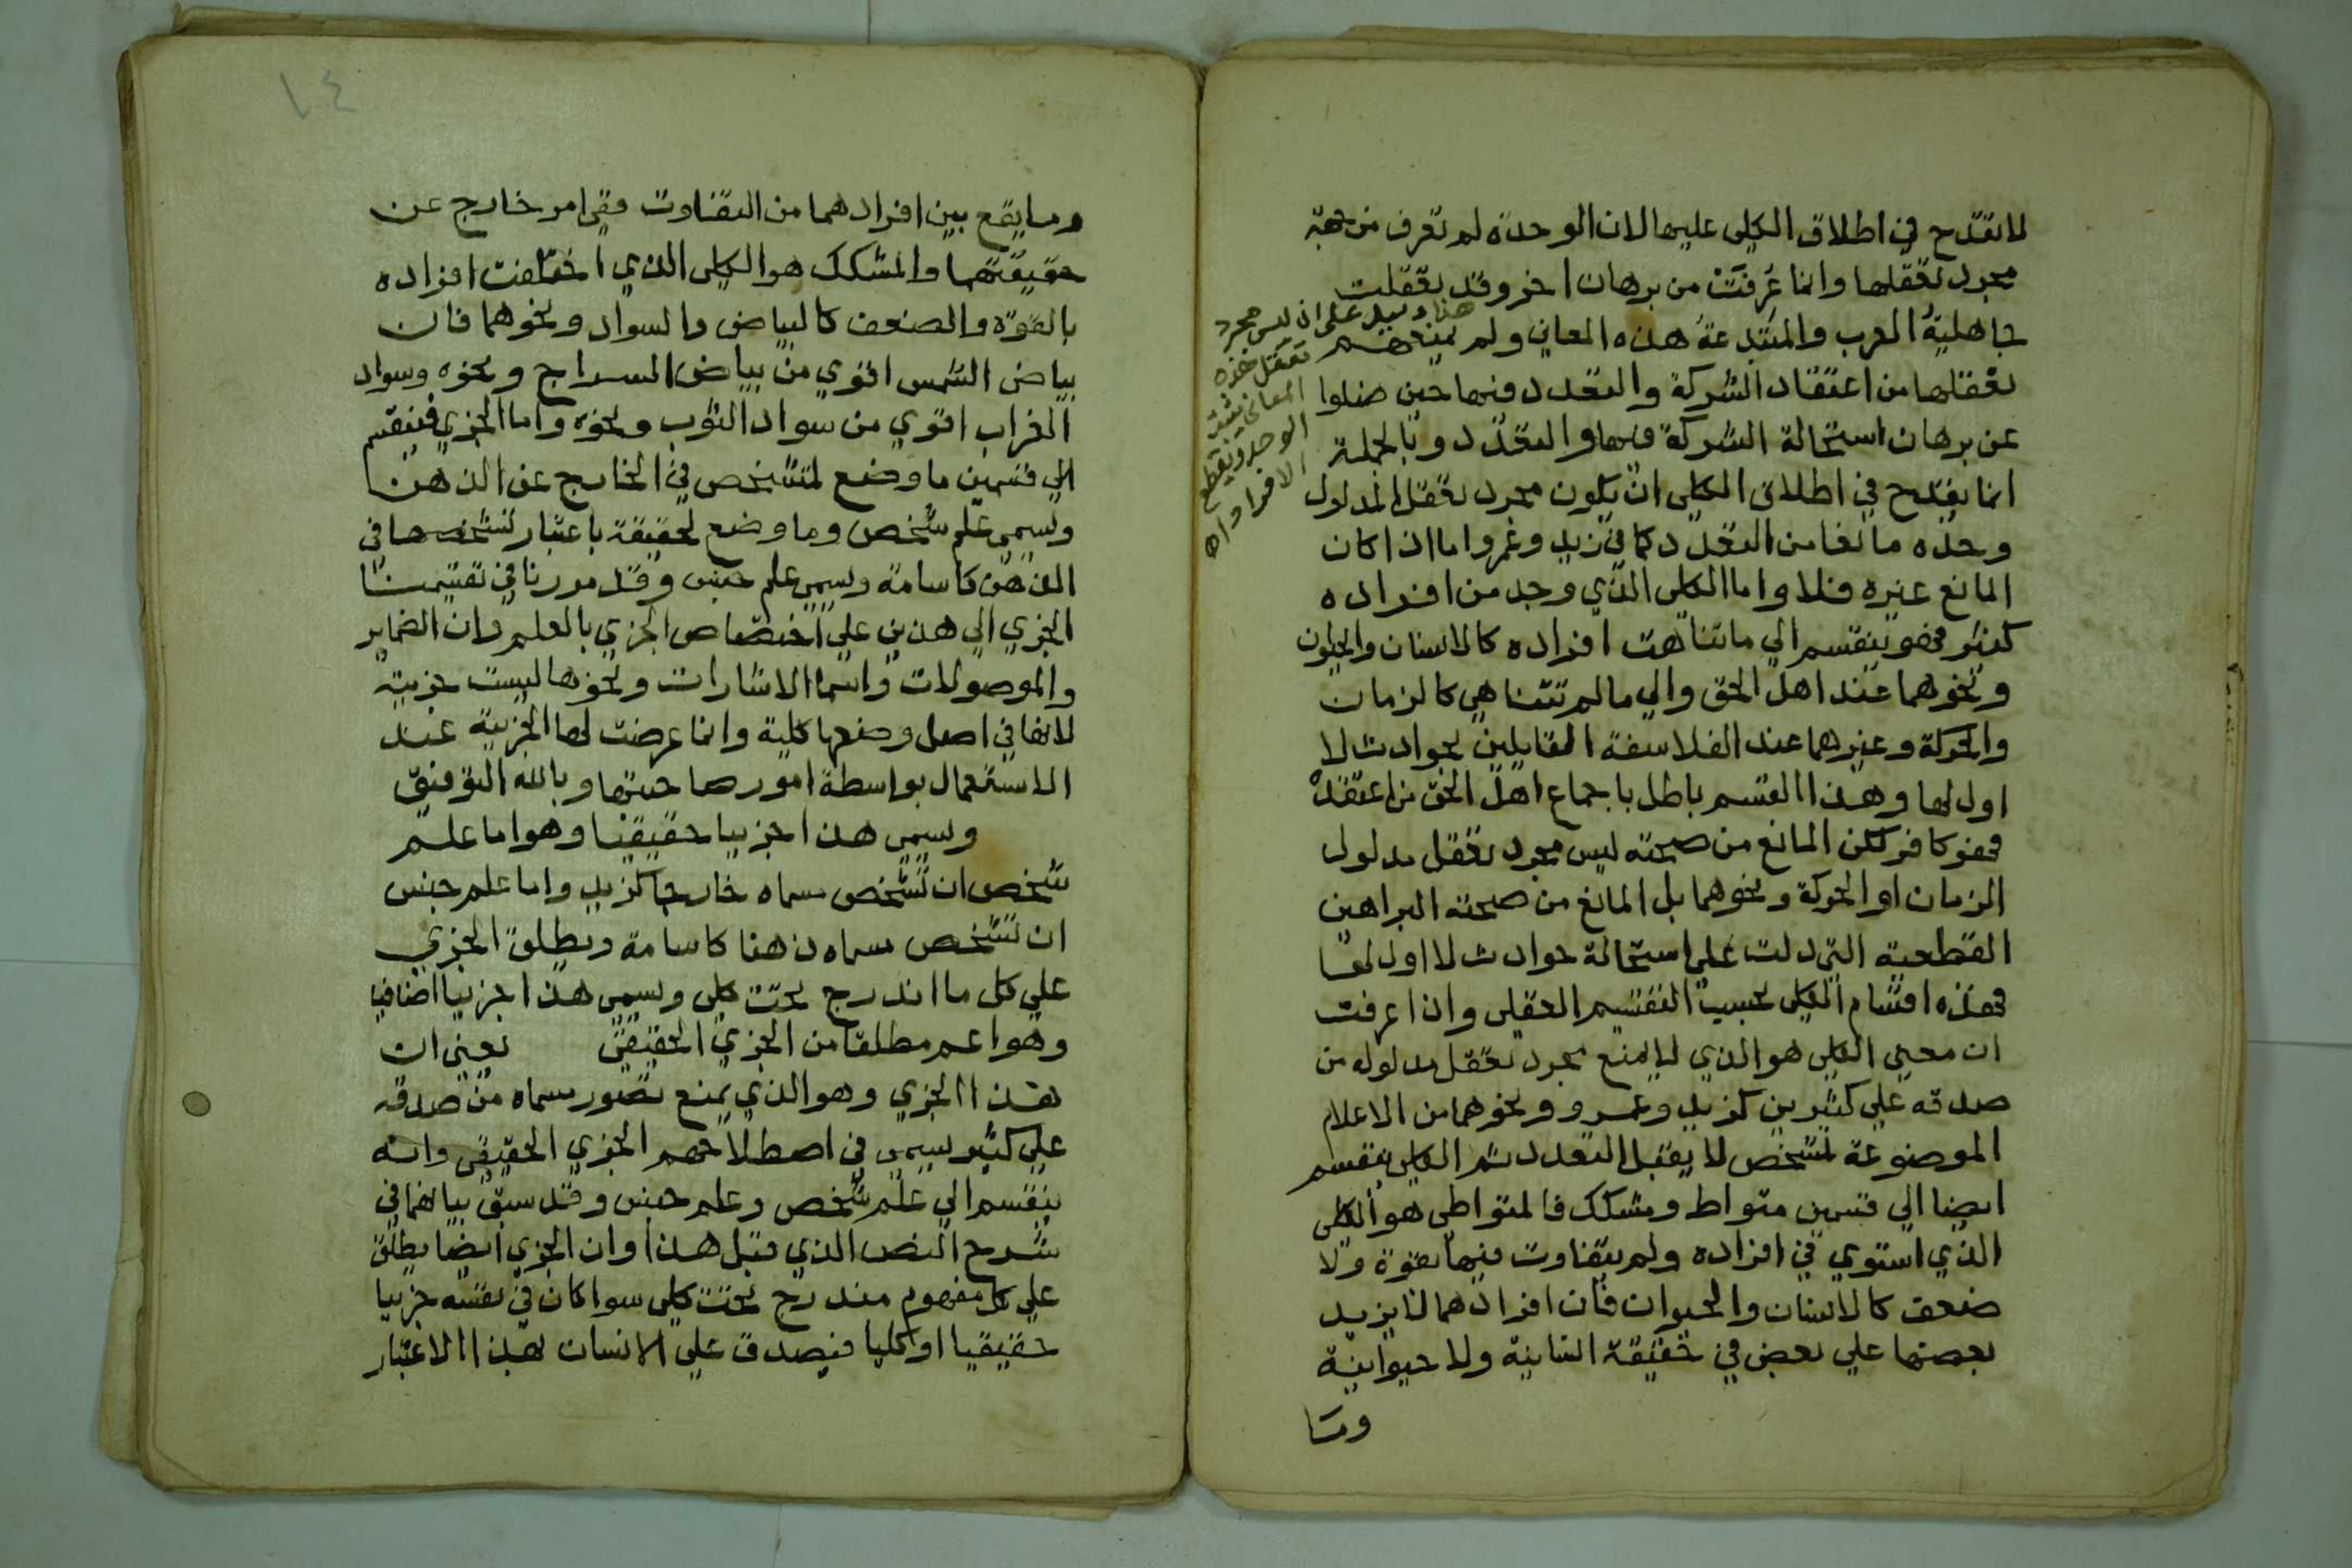 لا يقدح في اطلاق الكلي عليها لان الوحدة لم تعرف من جهة
مجرد تعقلها وانما عُرفَتْ من برهان اخر وقد تعقلت
جاهليةُ العرب والمبتدعةُ هذه المعاني ولم يمنعهم
تعقلها من اعتقاد الشركة والتعدد فيها حين ضلوا
عن برهان استحالة الشركة فيها والتعدد وبالجملة
انما يقدح في اطلاق الكلي ان يكون مجرد تعقل المدلول
وحده مانعا من التعدد كما في زيد وعمرو اما اذا كان
المانع غيره فلا واما الكلي الذي وجد من افراده
كثير فهو ينقسم الي ما تناهت افراده كالانسان والحيوان
ونحوهما عند اهل الحق والي ما لم تتناهي كالزمان
والحركة وغيرهما عند الفلاسفة القايلين بحوادث لا
اول لها وهذا القسم باطل باجماع اهل الحق من اعتقده
فهو كافر لكن المانع من صحته ليس مجرد تعقل مدلول
الزمان او الحركة ونحوهما بل المانع من صحته البراهين
القطعية التي دلت علي استحالة حوادث لا اول لها
فهذه اقسام الكلي بحسب التقسيم العقلي واذا عرفت
ان معني الكلي هو الذي لا يمنع مجرد تعقل مدلوله من
صدقه علي كثيرين كزيد وعمرو ونحوهما من الاعلام
الموضوعة لتشخص لا يقبل التعدد ثم الكلي ينقسم
ايضا الي قسمين متواط ومشكك فالمتواطي هو الكلي
الذي استوي في افراده ولم يتفاوت فيها بقوة ولا
ضعف كالانسان والحيوان فان افرادهما لا يزيد
بعضها علي بعض في حقيقة انسانية ولا حيوانية
وما
هذا دليل على ان ليس مجرد
تعقل هذه
المعاني يثبت
الوحدة ويقطع
الافراد اه
١٤
وما يقع بين افرادهما من التفاوت ففي امر خارج عن
حقيقتهما والمشكك هو الكلي الذي اختلفت افراده
بالقوة والضعف كالبياض والسواد ونحوهما فان
بياض الشمس اقوي من بياض السراج ونحوه وسواد
الغراب اقوي من سواد الثوب ونحوه واما الجزي فينقسم
الي قسمين ما وضع لمتشخص في الخارج عن الذهن
ويسمي علم شخص وما وضع لحقيقة باعتبار تشخصها في
الذهن كاسامة ويسمي علم جنس وقد مررنا في تقسيمنا
الجزي الي هذين علي اختصاص الجزي بالعلم وان الضماير
والموصولات واسما الاشارات ونحوها ليست جزيية
لانها في اصل وضعها كلية وانما عرضت لها الجزيية عند
الاستعمال بواسطة امور صاحبتها وبالله التوفيق
ويسمي هذا جزييا حقيقيا وهو اما علم
شخص ان تشخص مسماه خارجا كزيد واما علم جنس
ان تشخص مسماه ذهنا كاسامة ويطلق الجزي
علي كل ما اندرج تحت كلي ويسمي هذا جزييا اضافيا
وهو اعم مطلقا من الجزي الحقيقي يعني ان
هذا الجزي وهو الذي يمنع تصور مسماه من صدقه
علي كثير يسمي في اصطلاحهم الجزي الحقيقي وانه
ينقسم الي علم شخص وعلم جنس وقد سبق بيانهما في
شرح النص الذي قبل هذا وان الجزي ايضا يطلق
علي كل مفهوم مندرج تحت كلي سوا كان في نفسه جزييا
حقيقيا او كليا فيصدق علي الانسان بهذا الاعتبار